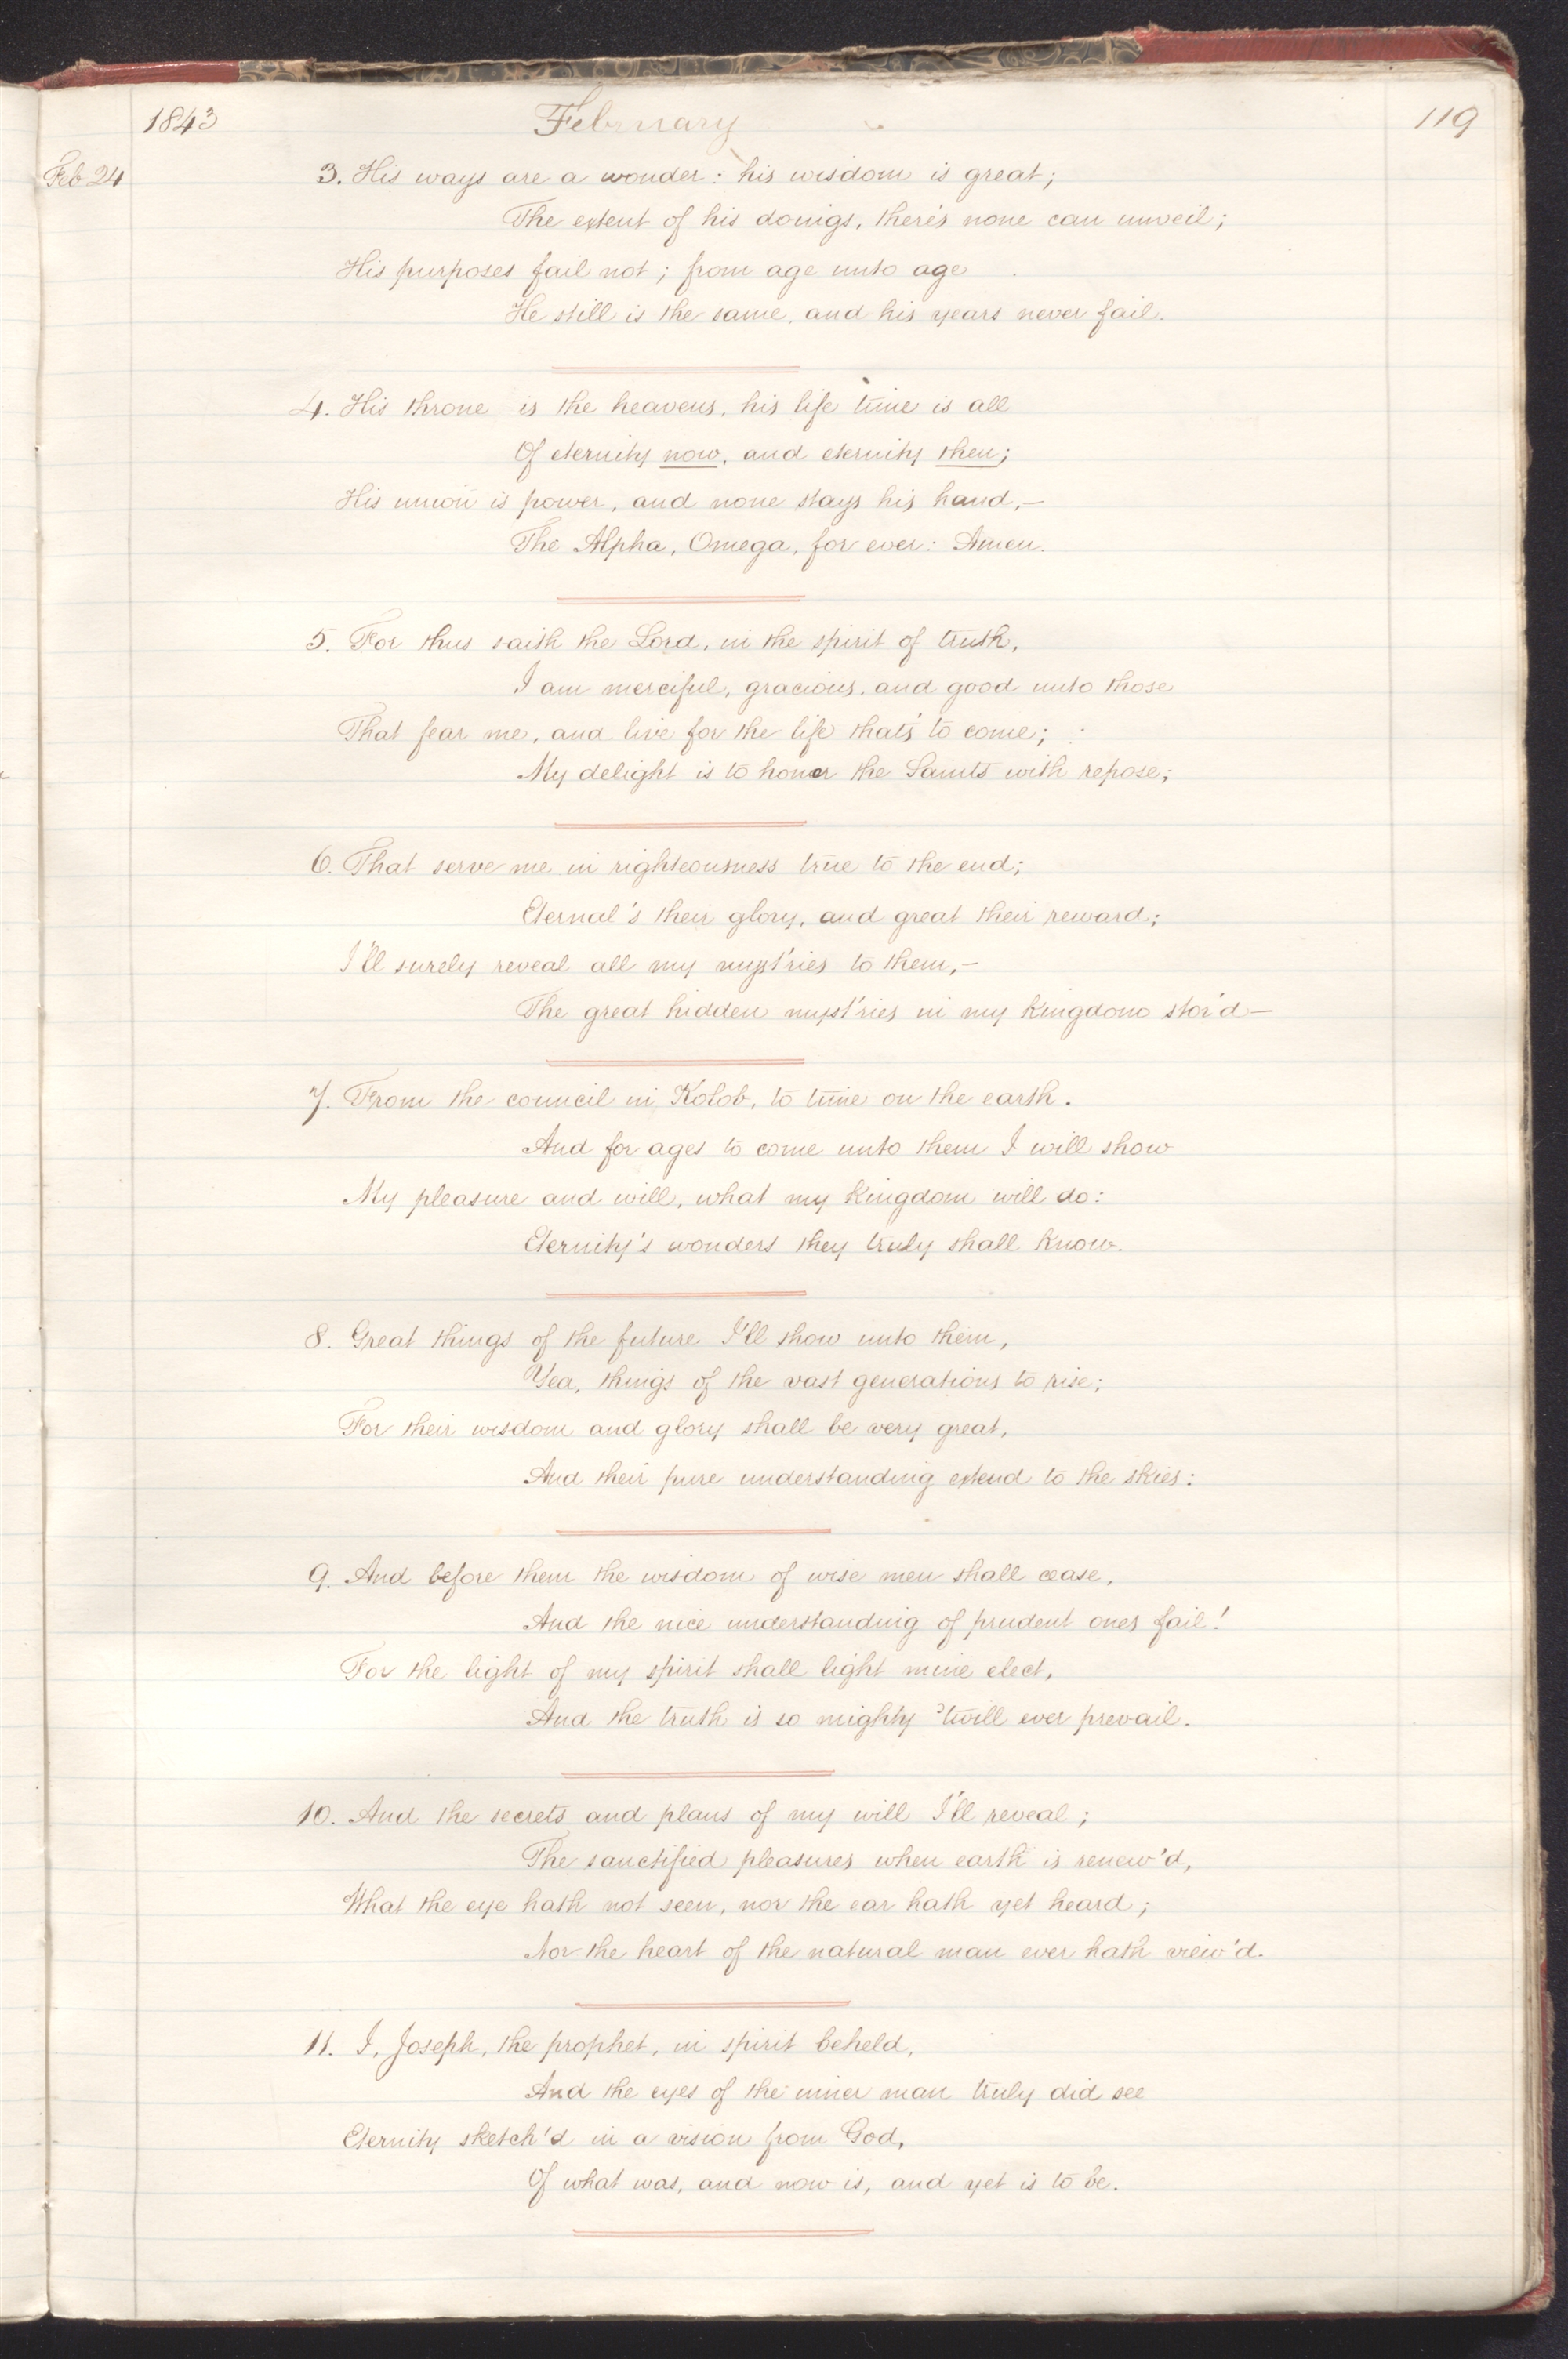 1843 February 119
Feb 24
3. His ways are a wonder: his wisdom is great;
The extent of his doings, there's none can unveil;
His purposes fail not; from age unto age
He still is the same, and his years never fail.
4. His throne is the heavens, his life time is all
Of eternity now, and eternity then;
His union is power, and none stays his hand,—
The Alpha, Omega, for ever: Amen.
5. For thus saith the Lord, in the spirit of truth,
I am merciful, gracious, and good unto those
That fear me, and live for the life that's to come;
My delight is to honor the Saints with repose;
6. That serve me in righteousness true to the end;
Eternal's their glory, and great their reward;
I'll surely reveal all my myst'ries to them,—
The great hidden myst'ries in my kingdom stor'd—
7. From the council in Kolob, to time on the earth.
And for ages to come unto them I will show
My pleasure and will, what my kingdom will do:
Eternity's wonders they truly shall know.
8. Great things of the future I'll show unto them,
Yea, things of the vast generations to rise;
For their wisdom and glory shall be very great,
And their pure understanding extend to the skies:
9. And before them the wisdom of wise men shall cease,
And the nice understanding of prudent ones fail!
For the light of my spirit shall light mine elect,
And the truth is so mighty 'twill ever prevail.
10. And the secrets and plans of my will I'll reveal;
The sanctified pleasures when earth is renew'd,
What the eye hath not seen, nor the ear hath yet heard;
Nor the heart of the natural man ever hath view'd.
11. I, Joseph, the prophet, in spirit beheld,
And the eyes of the inner man truly did see
Eternity sketch'd in a vision from God,
Of what was, and now is, and yet is to be.